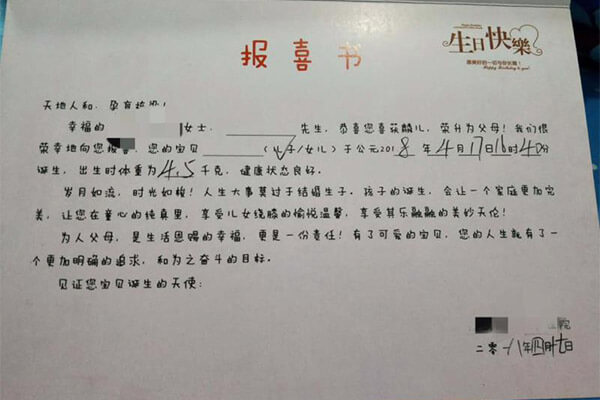 生日快樂
Happy Birthday to you!
报喜书
天地人和，孕育
幸福的 女士， 先生，恭喜您喜获麟儿，荣升为父母！我们很
荣幸地向您报喜，您的宝贝 （儿子/女儿）于公元2018年4月17日16时40分
诞生，出生时体重为4.5千克，健康状态良好。
岁月如流，时光如梭！人生大事莫过于结婚生子。孩子的诞生，会让一个家庭更加完
美，让您在童心的纯真里，享受儿女绕膝的愉悦温馨，享受其乐融融的美妙天伦！
为人父母，是生活恩赐的幸福，更是一份责任！有了可爱的宝贝，您的人生就有了一
个更加明确的追求，和为之奋斗的目标。
见证您宝贝诞生的天使：
医院
二零一八年四月十七日